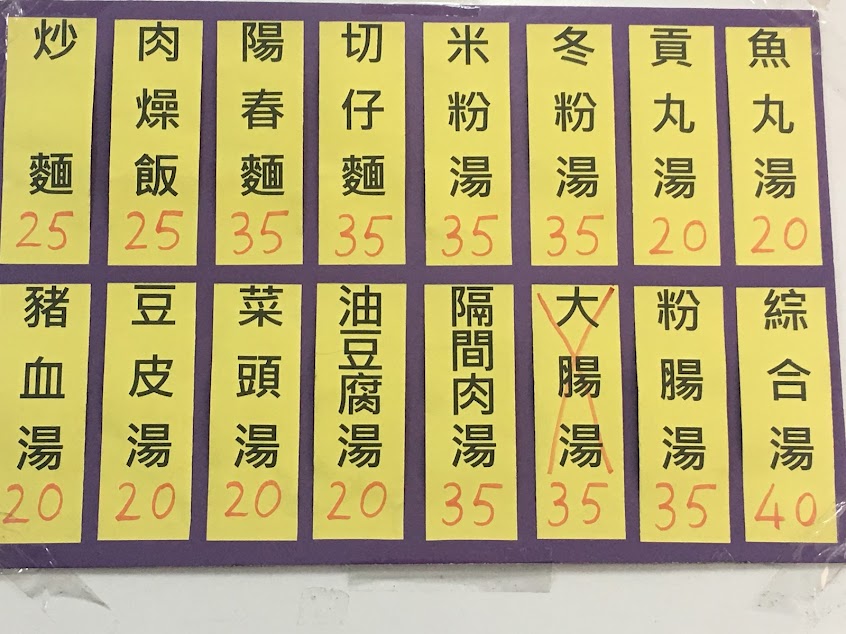 魚丸湯 20
貢丸湯 20
冬粉湯 35
米粉湯 35
切仔麵 35
陽春麵 35
肉燥飯 25
炒麵 25
綜合湯 40
粉腸湯 35
大腸湯 35
隔間肉湯 35
油豆腐湯 20
菜頭湯 20
豆皮湯 20
豬血湯 20